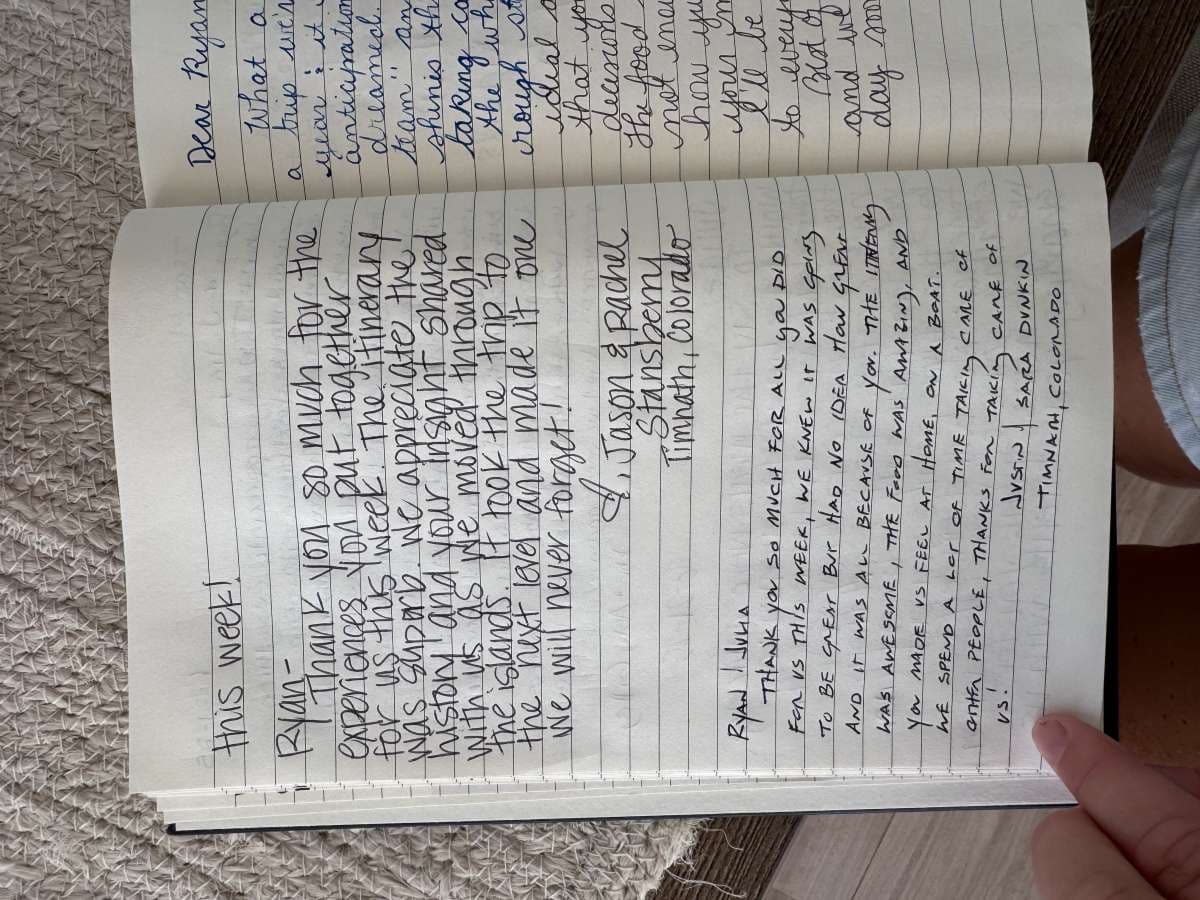 this week!
Ryan-
Thank you so much for the
experiences you put together
for us this week. The itinerary
was suparb. We appreciate the
history and your insight shared
with us as we moved through
the islands. It took the trip to
the next level and made it one
we will never forget!
Jason & Rachel
Stansberry
Timnath, Colorado
RYAN / JULIA
THANK YOU SO MUCH FOR ALL YOU DID
FOR US THIS WEEK, WE KNEW IT WAS GOING
TO BE GREAT BUT HAD NO IDEA HOW GREAT
AND IT WAS ALL BECAUSE OF YOU. THE ITINERARY
WAS AWESOME, THE FOOD WAS AMAZING, AND
YOU MADE US FEEL AT HOME, ON A BOAT.
WE SPEND A LOT OF TIME TAKING CARE OF
OTHER PEOPLE, THANKS FOR TAKING CARE OF
US!
JUSTIN / SARA DUNKIN
TIMNATH, COLORADO
Dear Ryan
What a
a trip we'r
year it
anticipation
dreamed
team" an
shines th
taking ca
the wh
rough st
ideal
that yo
decisions
the food
not enou
how you
your
I'll be
to every
Best of
and w
day